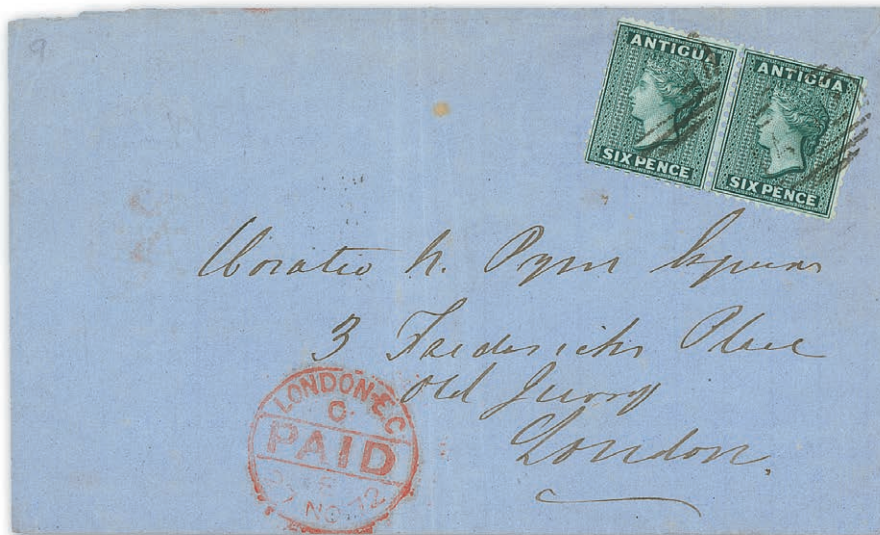 9
ANTIGUA
SIX PENCE
ANTIGUA
SIX PENCE
Horatio N. Pym Esquire
3 Frederick's Place
Old Jewry
London.
LONDON·E.C
C
PAID
NO 72